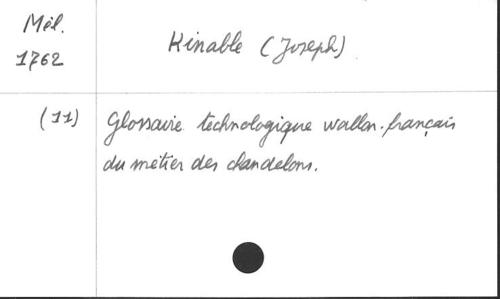 Mél.
1762
Kinable (Joseph)
(11)
Glossaire technologique wallon-français
du métier des chandelons.